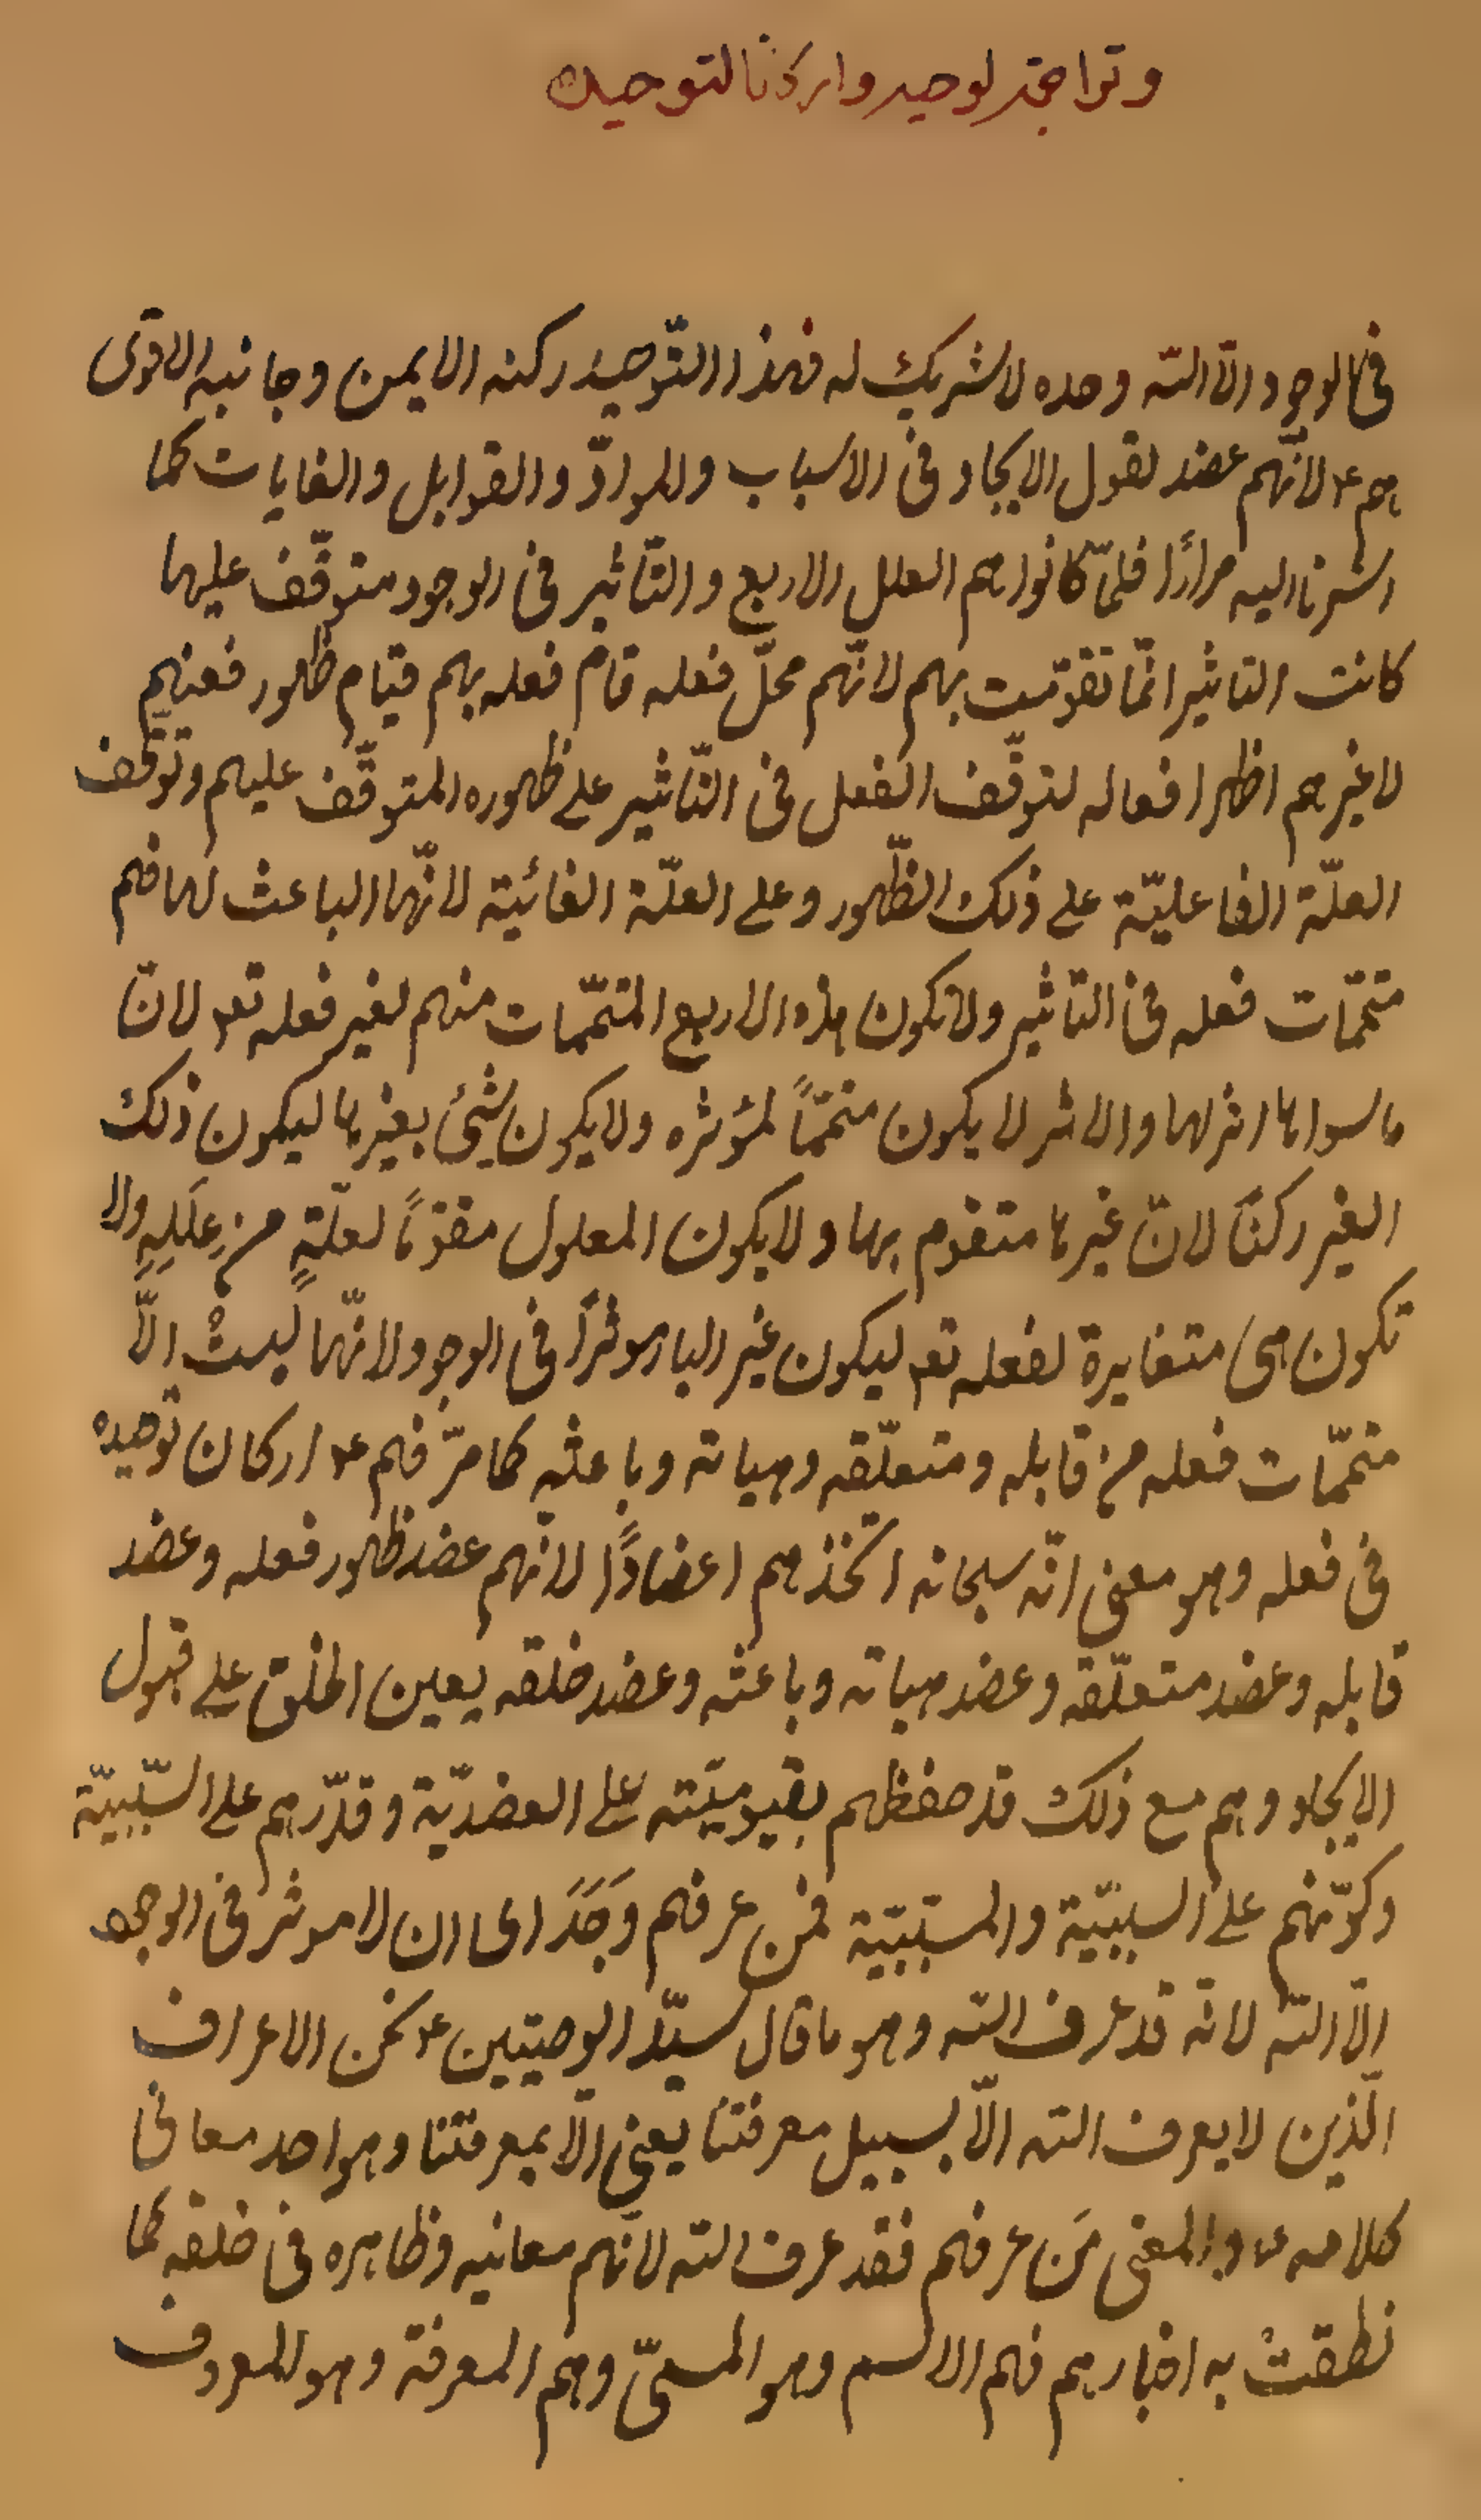 وتراجمة لوحيه واركانا لتوحيده
في الوجود الّا الله وحده لا شريك له فهذا التّوحيد ركنه الايمن وجانبه الاقوى
هم ع لانّهم عضد لقول الايجاد في الاسباب والموادّ والقوابل والغايات كما
اشرنا اليه مرارًا فلمّا كانوا هم العلل الاربع والتّأثير في الوجود متوقّف عليها
كانت التاثير انّما تقوّمت بهم لانّهم محلّ فعله قام فعله بهم قيام ظهور فعنهم
لا غيرهم اظهر افعاله لتوقّف الفعل في التّاثير على ظهوره المتوقّف عليهم وتوقّف
العلّة الفاعليّة على ذلك الظّهور وعلى العلّة الغائيّة لانّها الباعث لها فهم
متمّمات فعله في التّاثير ولا تكون هذه الاربع المتمّمات منهم لغير فعله تعـ لانّ
ما سواها اثر لها والاثر لا يكون متمّمًا لمؤثره ولا يكون شئ بغيرها ليكون ذلك
الغير ركنًا لانّ غيرها متقوم بها ولا يكون المعلول مقوّمًا لعلّةٍ من عِلَلِهِ ولا
تكون هى متغايرة لفعله تعـ ليكون غير البارموثرًا في الوجود لانّها ليستْ الّا
متمّمات فعله من قابله ومتعلّقه وهياته وباعثه كما مرّ فهم ع اركان توحيده
في فعله وهو معنى انّه سبحانه اتّخذهم اعضادًا لانّهم عضد ظهور فعله وعضد
قابله وعضد متعلّقه وعضد هياته وباعثه وعضد خلقه يعين الخلق على قبول
الايجاد وهم مع ذلك قد حفظهم بقيوميّته على العضديّة وقدّرهم على السّببيّة
وكوّنهم على السببيّة والمسبّبيّة فمن عرفهم وَجَدَ اى ان لا موثر في الوجود
الّا الله لانّه قد عرف الله وهو ما قال سيّد الوصيّين ع نحن الاعراف
الّذين لا يعرف الله الّا بسبيل معرفتنا يعنى الّا بمعرفتنا وهو احد معانى
كلامه ع والمعنى مَن عرفهم فقد عرف الله لانّهم معانيه وظاهره في خلقه كما
نطقتْ به اخبارهم فهم الاسم وهو المسمّى وهم المعرفة وهو المعروف